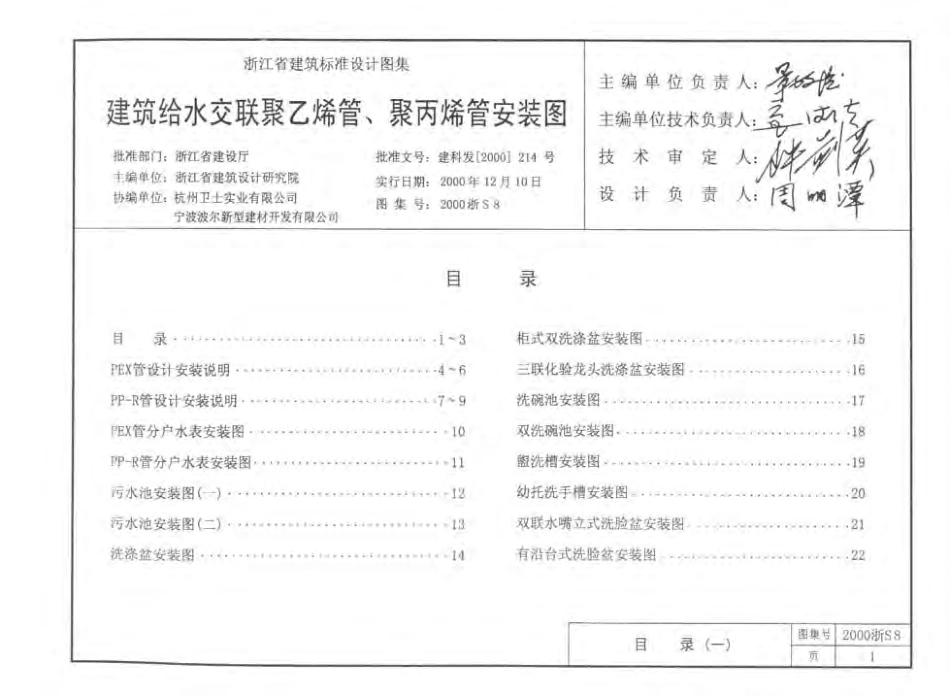 浙江省建筑标准设计图集
建筑给水交联聚乙烯管、聚丙烯管安装图
批准部门：浙江省建设厅
主编单位：浙江省建筑设计研究院
协编单位：杭州卫士实业有限公司
宁波波尔新型建材开发有限公司
批准文号：建科发[2000] 214 号
实行日期：2000年12月10日
图 集 号：2000浙S8
主编单位负责人：
主编单位技术负责人：
技 术 审 定 人：
设 计 负 责 人：周明潭
目 录
目 录 1~3
PEX管设计安装说明 4~6
PP-R管设计安装说明 7~9
PEX管分户水表安装图 10
PP-R管分户水表安装图 11
污水池安装图(一) 12
污水池安装图(二) 13
洗涤盆安装图 14
柜式双洗涤盆安装图 15
三联化验龙头洗涤盆安装图 16
洗碗池安装图 17
双洗碗池安装图 18
盥洗槽安装图 19
幼托洗手槽安装图 20
双联水嘴立式洗脸盆安装图 21
有沿台式洗脸盆安装图 22
目 录 (一)
图集号 2000浙S8
页 1